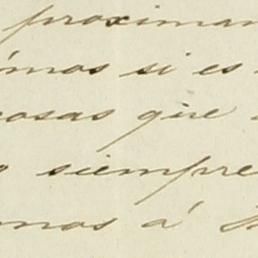 proximam
mos si es
cosas que
siempre
mos á